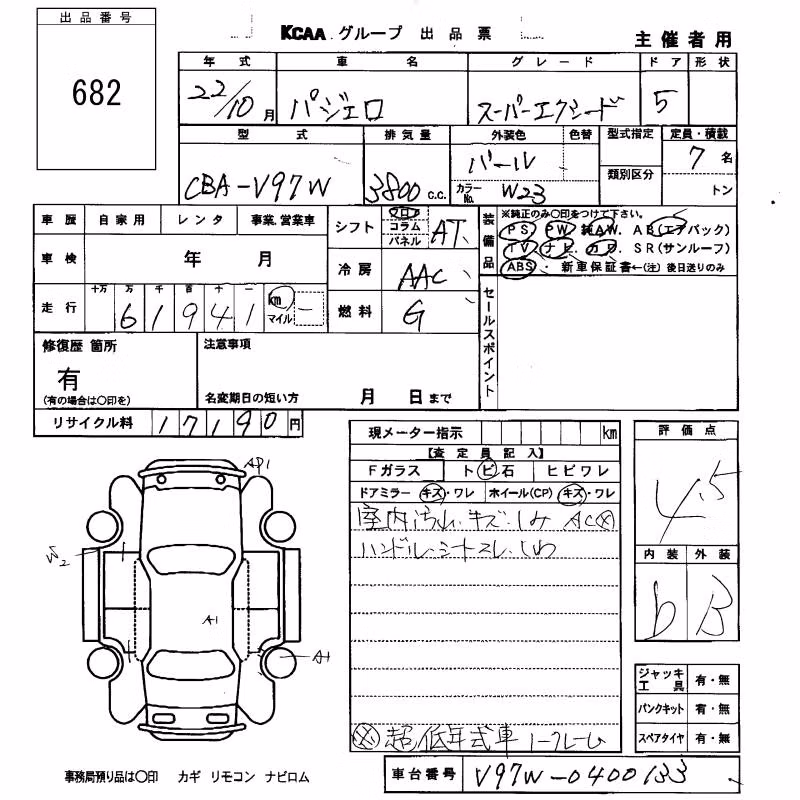 出品番号
682
KCAA グループ 出品票
主催者用
年式 車名 グレード ドア 形状
22/10月 パジェロ スーパーエクシード 5
型式 排気量 外装色 色替 型式指定 定員・積載
CBA-V97W 3800 c.c. パール 類別区分 7名
カラーNo. W23 トン
車歴 自家用 レンタ 事業.営業車 シフト フロア コラム パネル AT
装備品 ※純正のみ〇印をつけて下さい。
PS PW 純AW. AB(エアバック)
TV ナビ. カワ. SR(サンルーフ)
ABS ・ 新車保証書←(注) 後日送りのみ
車検 年 月 冷房 AAC
走行 十万 万 千 百 十 一 km マイル 燃料 G
61941
セールスポイント
修復歴 箇所 注意事項
有
(有の場合は〇印を) 名変期日の短い方 月 日まで
リサイクル料 17190円
現メーター指示 km
【査定員記入】
Fガラス トビ石 ヒビワレ
ドアミラー キズ・ワレ ホイール(CP) キズ・ワレ
室内汚れ.キズ.シミ AC
ハンドル.シートスレ.シワ
※超低年式車
評価点
4.5
内装 外装
b B
AP1
A1
A1
ジャッキ工具 有・無
パンクキット 有・無
スペアタイヤ 有・無
事務局預り品は〇印 カギ リモコン ナビロム
車台番号 V97W-0400133